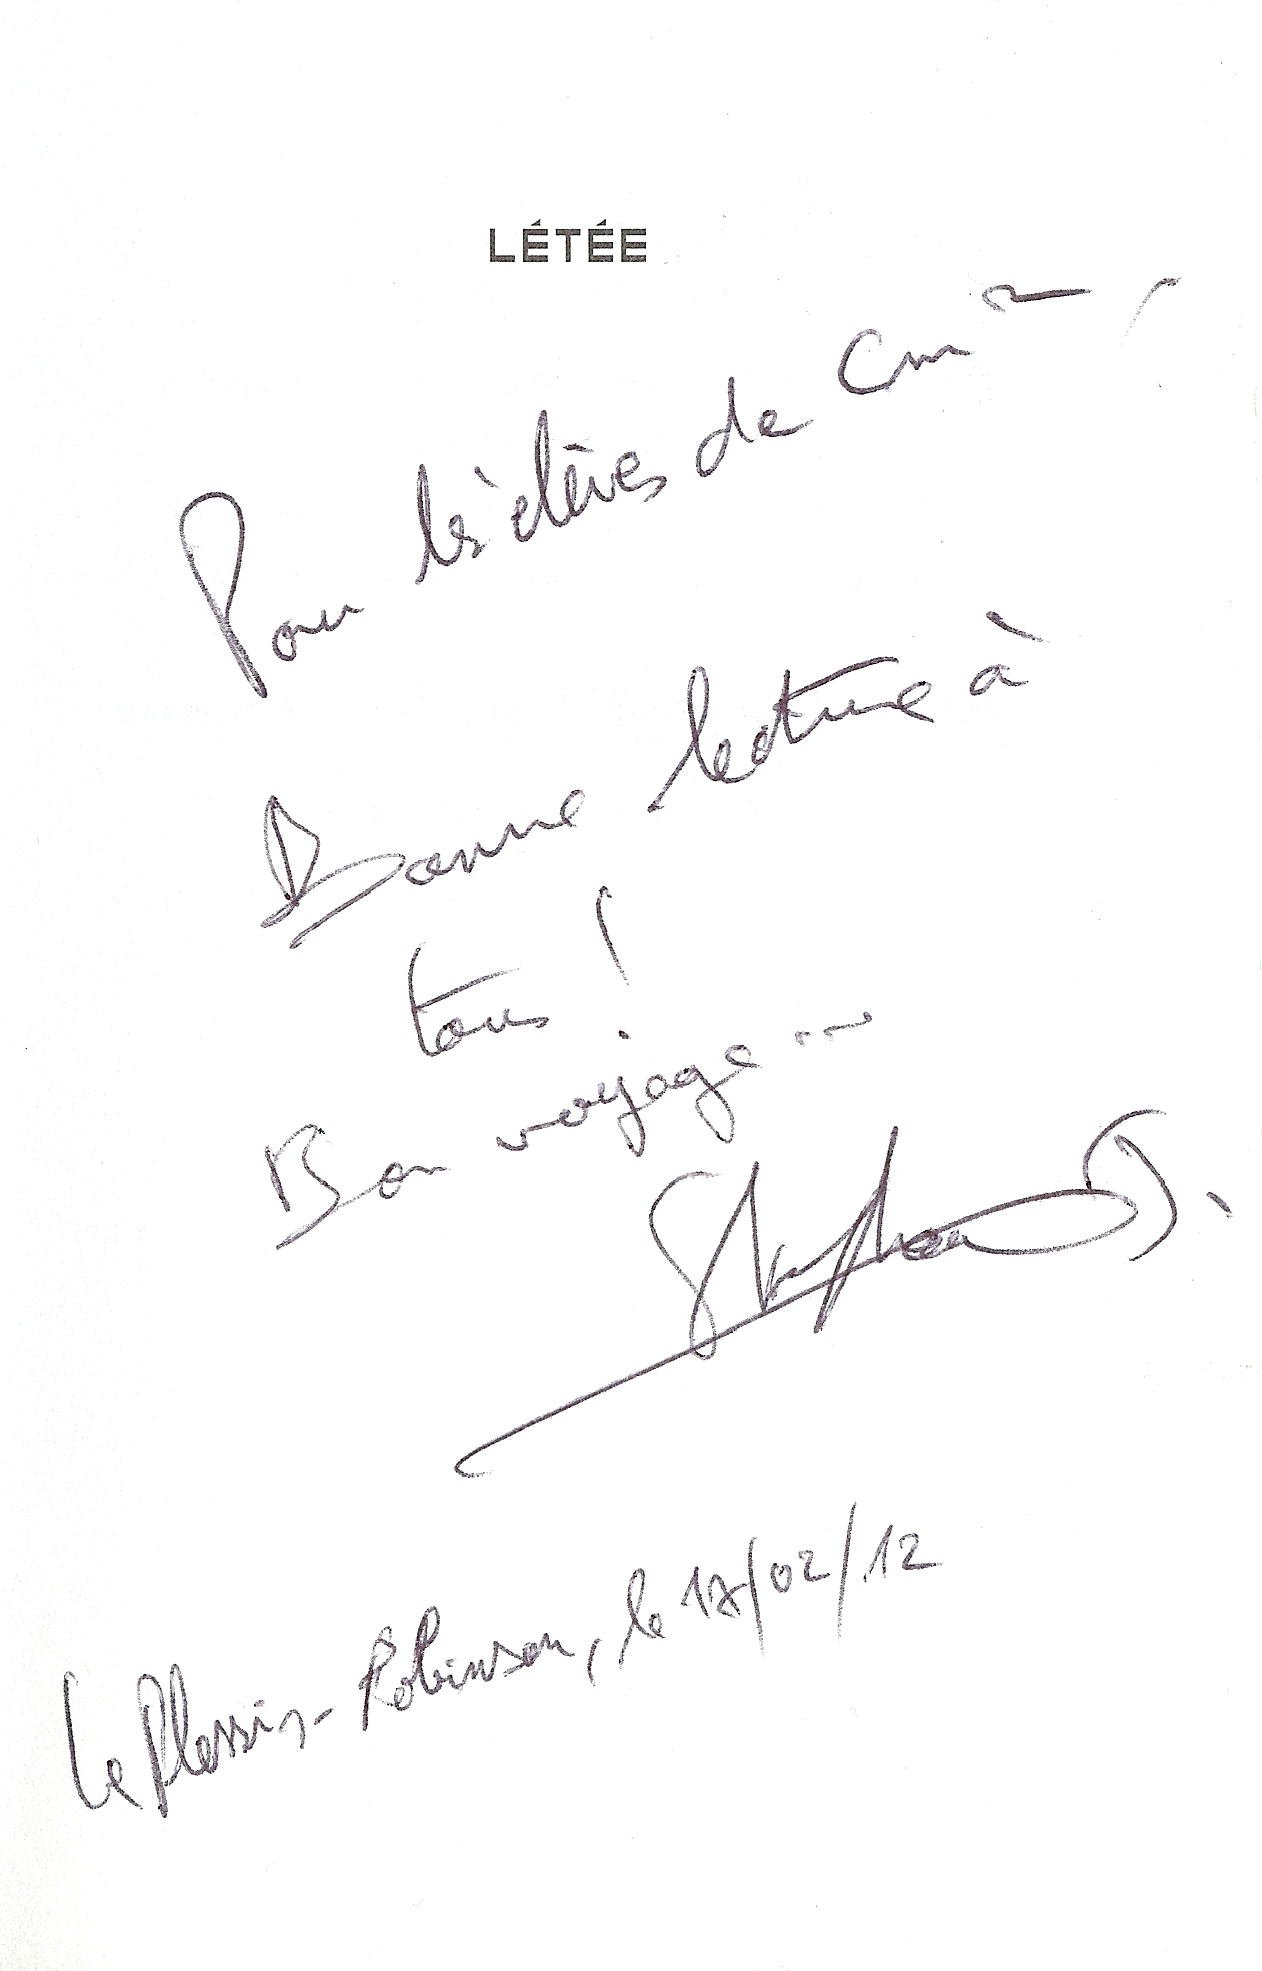 LÉTÉE
Pour les élèves de CM2,
Bonne lecture à
tous !
Bon voyage ...
Le Plessis-Robinson, le 17/02/12